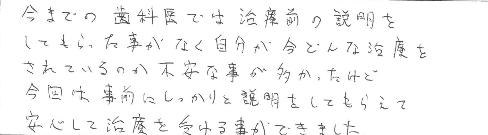 今までの歯科医では治療前の説明を
してもらった事がなく自分が今どんな治療を
されているのか不安な事が多かったけど
今回は事前にしっかりと説明をしてもらえて
安心して治療を受ける事ができました